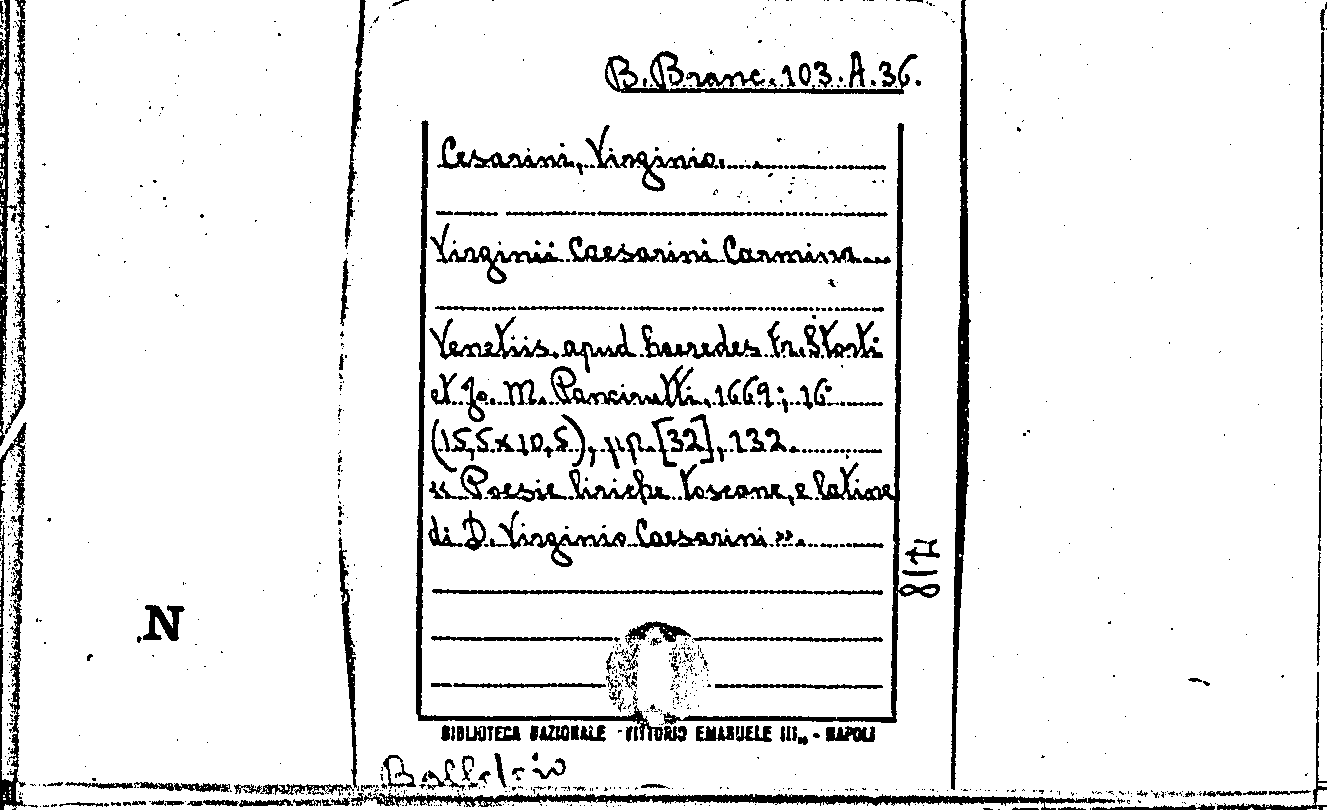 B. Branc. 103. A. 36.
Cesarini, Virginio.
Virginii Caesarini Carmina...
Venetiis, apud haeredes Fr. Storti
et Jo. M. Pancirutti, 1669; 16°
(15,5x10,5), pp. [32], 132.
« Poesie liriche toscane, e latine
di D. Virginio Caesarini ».
8117
N
BIBLIOTECA NAZIONALE "VITTORIO EMANUELE III„ - NAPOLI